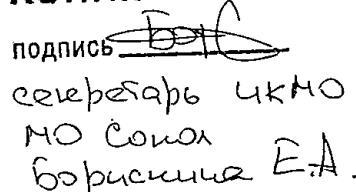 подпись
секретарь ИКМО
МО Сокол
Борискина Е.А.